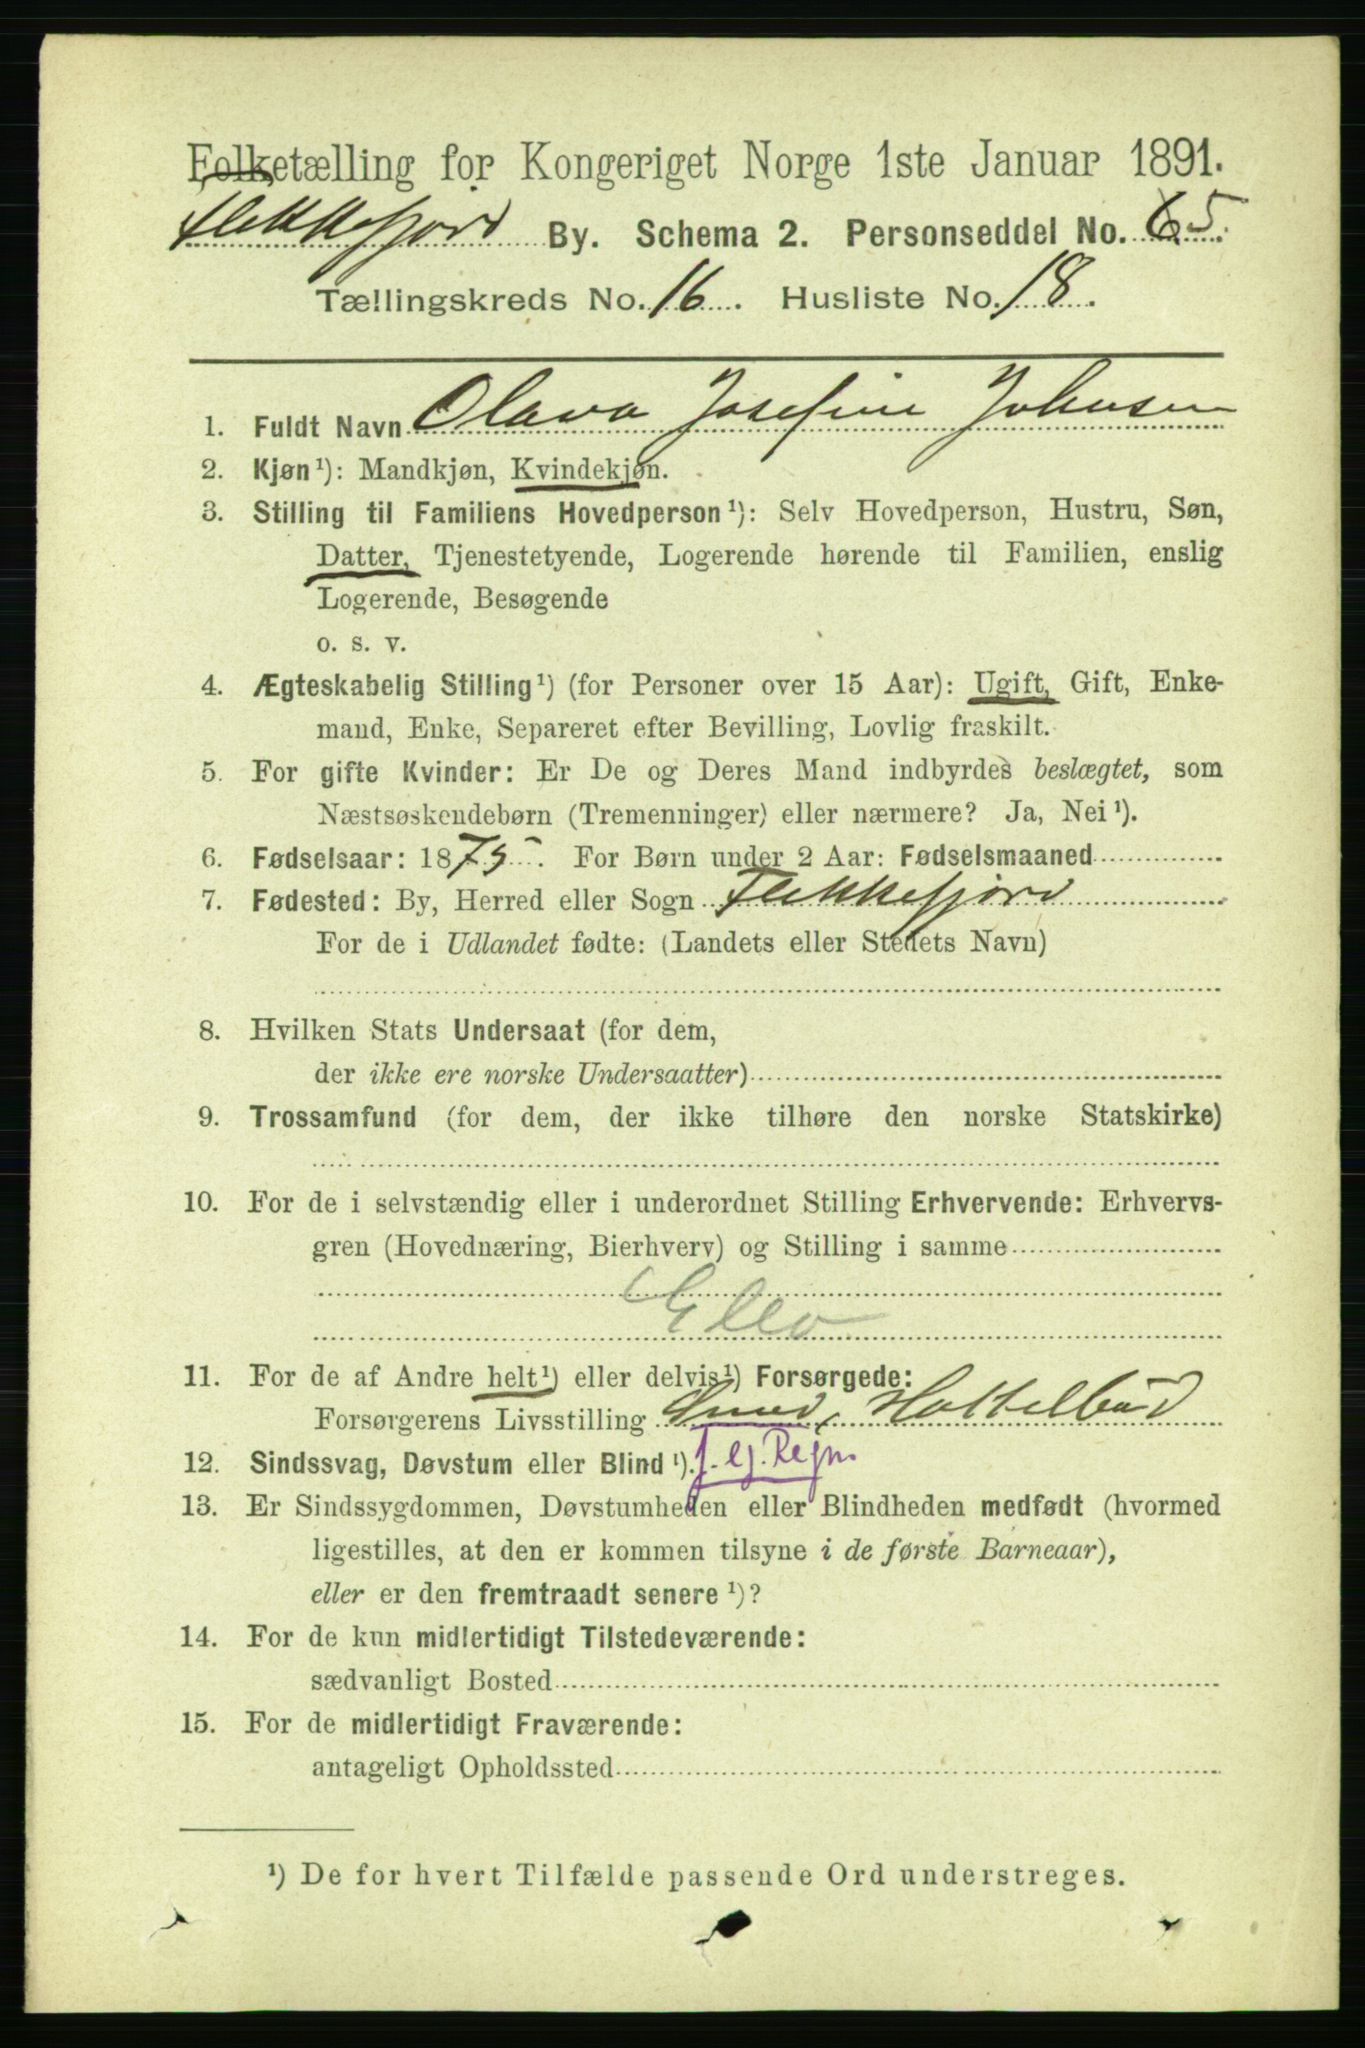 Folketælling for Kongeriget Norge 1ste Januar 1891.
Flekkefjord By. Schema 2. Personseddel No. 65.
Tællingskreds No. 16. Husliste No. 18.
1. Fuldt Navn Olava Josefine Johnsen
2. Kjøn¹): Mandkjøn, Kvindekjøn.
3. Stilling til Familiens Hovedperson¹): Selv Hovedperson, Hustru, Søn,
Datter, Tjenestetyende, Logerende hørende til Familien, enslig
Logerende, Besøgende
o. s. v.
4. Ægteskabelig Stilling¹) (for Personer over 15 Aar): Ugift, Gift, Enke-
mand, Enke, Separeret efter Bevilling, Lovlig fraskilt.
5. For gifte Kvinder: Er De og Deres Mand indbyrdes beslægtet, som
Næstsøskendebørn (Tremenninger) eller nærmere? Ja, Nei¹).
6. Fødselsaar: 1875. For Børn under 2 Aar: Fødselsmaaned
7. Fødested: By, Herred eller Sogn Flekkefjord
For de i Udlandet fødte: (Landets eller Stedets Navn)
8. Hvilken Stats Undersaat (for dem,
der ikke ere norske Undersaatter)
9. Trossamfund (for dem, der ikke tilhøre den norske Statskirke)
10. For de i selvstændig eller i underordnet Stilling Erhvervende: Erhvervs-
gren (Hovednæring, Bierhverv) og Stilling i samme
Elev
11. For de af Andre helt¹) eller delvis¹) Forsørgede:
Forsørgerens Livsstilling
12. Sindssvag, Døvstum eller Blind¹). f. eg. Regn.
13. Er Sindssygdommen, Døvstumheden eller Blindheden medfødt (hvormed
ligestilles, at den er kommen tilsyne i de første Barneaar),
eller er den fremtraadt senere¹)?
14. For de kun midlertidigt Tilstedeværende:
sædvanligt Bosted
15. For de midlertidigt Fraværende:
antageligt Opholdssted
¹) De for hvert Tilfælde passende Ord understreges.